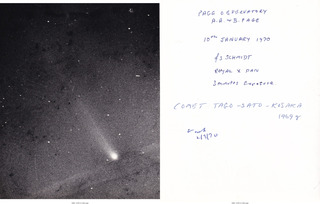 PAGE OBSERVATORY
A.A. & B. PAGE
10TH JANUARY 1970
SCHMIDT
ROYAL X PAN
MINUTES EXPOSURE
COMET TAGO-SATO-KOSAKA
1969 g